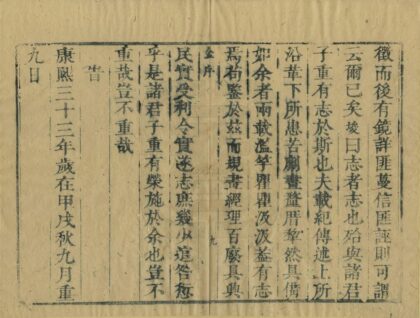 徵而後有鏡詳匪蔓信匪誣則可謂
云爾已矣 曰志者志也殆與諸君
子重有志於斯也夫載紀傳述上所
沿革下所患苦 畫釐厝犂然具備
如余者兩載濫竽瞿瞿汲汲蓋有志
焉苟鑒於茲而規畫經理百廢具興
金序
九
民實受利令實遂志庶幾少逭咎愆
乎是諸君子重有榮施於余也豈不
重哉豈不重哉
旹
康熙三十三年歲在甲戌秋九月重
九日